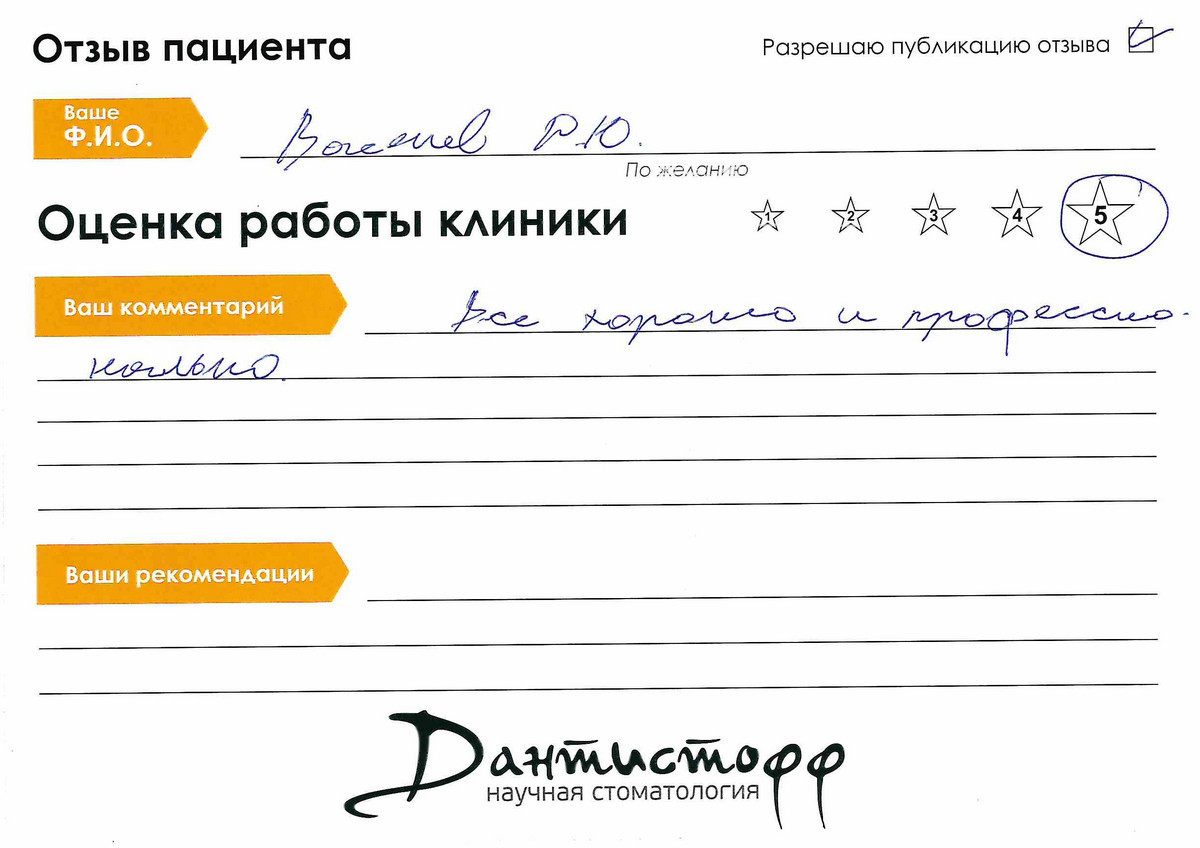 Отзыв пациента
Разрешаю публикацию отзыва
Ваше
Ф.И.О.
Р.Ю.
По желанию
Оценка работы клиники
1 2 3 4 5
Ваш комментарий
Все хорошо и профессио-
нально.
Ваши рекомендации
Дантистофф
научная стоматология